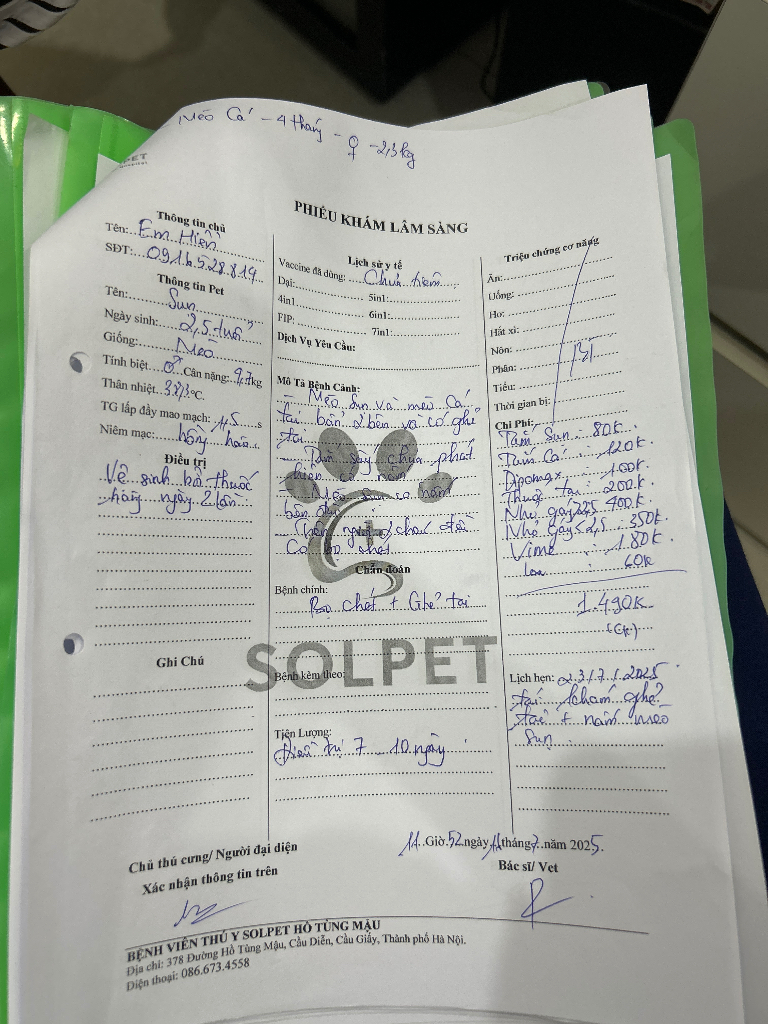 Mèo Cá - 4 tháng - ♀ - 2,3kg
PET
PHIẾU KHÁM LÂM SÀNG
Thông tin chủ
Tên: Em Hiền
SĐT: 0916.528.819
Thông tin Pet
Tên: Sun
Ngày sinh: 2,5 tuổi
Giống: Mèo
Tính biệt: ♂ Cân nặng: kg
Thân nhiệt: °C.
TG lấp đầy mao mạch: 1,5 s
Niêm mạc: hồng hào
Điều trị
Vệ sinh bà thuốc
hàng ngày 2 lần
Ghi Chú
Lịch sử y tế
Vaccine đã dùng: Chưa tiêm
Dại: 5in1:
4in1 6in1:
FIP: 7in1:
Dịch Vụ Yêu Cầu:
Mô Tả Bệnh Cảnh:
- Mèo Sun và mèo Cá
tai bẩn 2 bên và có ghẻ
tai
- Tắm sấy chưa phát
hiện có nấm
- Mèo Sun có nấm
bên
Có bọ chét
Chẩn đoán
Bệnh chính:
Bọ chét + Ghẻ tai
SOLPET
Bệnh kèm theo:
Tiên Lượng:
Điều trị 7 - 10 ngày
Triệu chứng cơ năng
Ăn:
Uống:
Ho:
Hắt xì:
Nôn:
Phân: BT
Tiểu:
Thời gian bị:
Chi Phí:
Tắm Sun : 80k
Tắm Cá : 120k.
Dipomax : 100k
Thuốc tai : 200k
Nhỏ gáy 400k.
Nhỏ gáy <2,5 : 350k
Vime : 180k.
60k
1.490k
(Ck)
Lịch hẹn: 23/7/2025
tái khám ghẻ
tai + nấm mèo
Sun
11 Giờ 52 ngày 14 tháng 7 năm 2025.
Chủ thú cưng/ Người đại diện
Xác nhận thông tin trên
Bác sĩ/ Vet
BỆNH VIỆN THÚ Y SOLPET HỒ TÙNG MẬU
Địa chỉ: 378 Đường Hồ Tùng Mậu, Cầu Diễn, Cầu Giấy, Thành phố Hà Nội.
Điện thoại: 086.673.4558